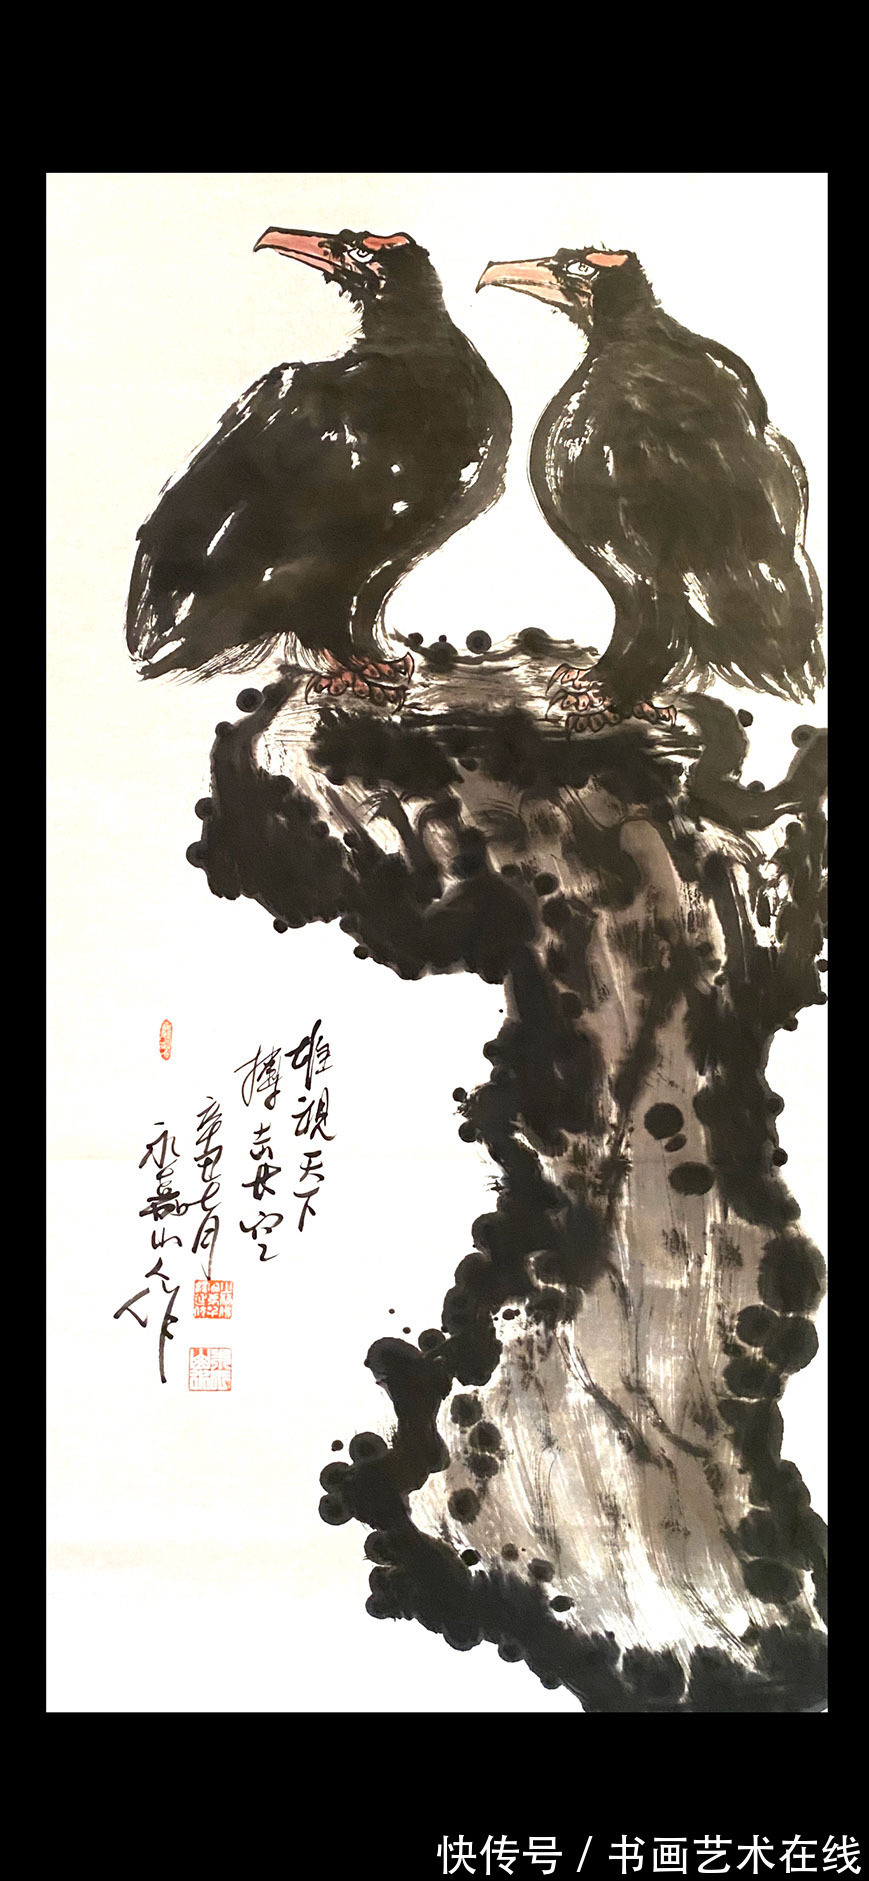 雄视天下
搏击长空
辛丑七月
永嘉山人作
快传号 / 书画艺术在线